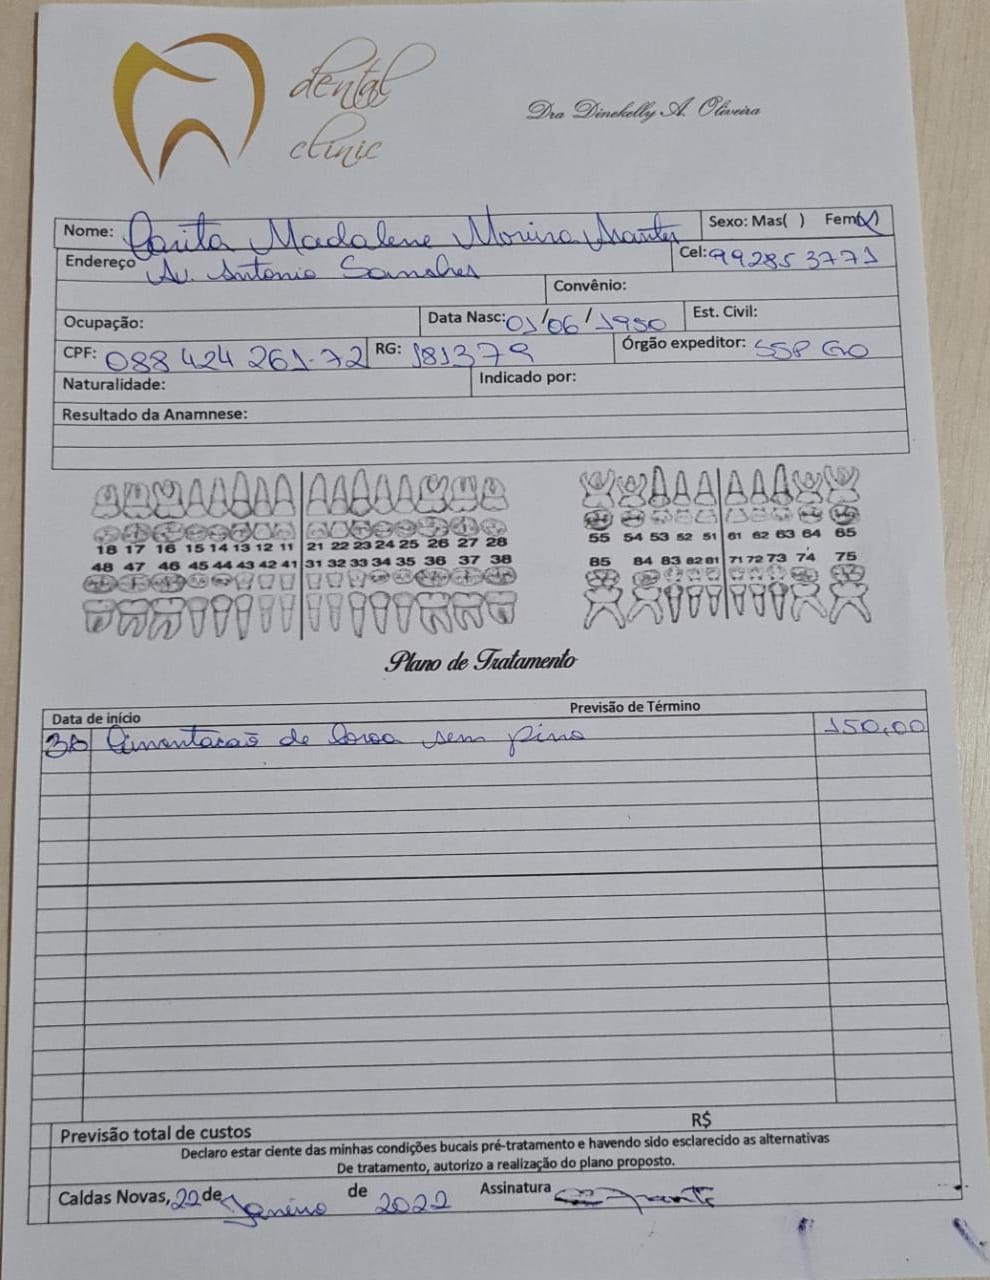 dental
clinic
Dra Dinekelly A. Oliveira
Nome: Madalene Sexo: Mas( ) Fem(X)
Endereço Av. Antonio Cel: 992853771
Convênio:
Ocupação: Data Nasc: 01/06/1950 Est. Civil:
CPF: 088 424 261-72 RG: 181379 Órgão expeditor: SSP GO
Naturalidade: Indicado por:
Resultado da Anamnese:
18 17 16 15 14 13 12 11 21 22 23 24 25 26 27 28
48 47 46 45 44 43 42 41 31 32 33 34 35 36 37 38
55 54 53 52 51 61 62 63 64 65
85 84 83 82 81 71 72 73 74 75
Plano de Tratamento
Data de início Previsão de Término
de sem pino 150,00
Previsão total de custos R$
Declaro estar ciente das minhas condições bucais pré-tratamento e havendo sido esclarecido as alternativas
De tratamento, autorizo a realização do plano proposto.
Caldas Novas, 22 de Janeiro de 2022 Assinatura